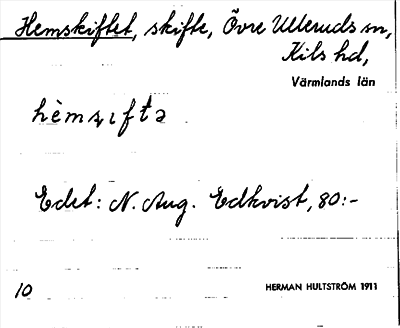 Hemskiftet, skifte, Övre Ulleruds sn,
Kils hd,
Värmlands län
hèmʂɩftə
Edet: N. Aug. Edkvist, 80:-
10
HERMAN HULTSTRÖM 1911